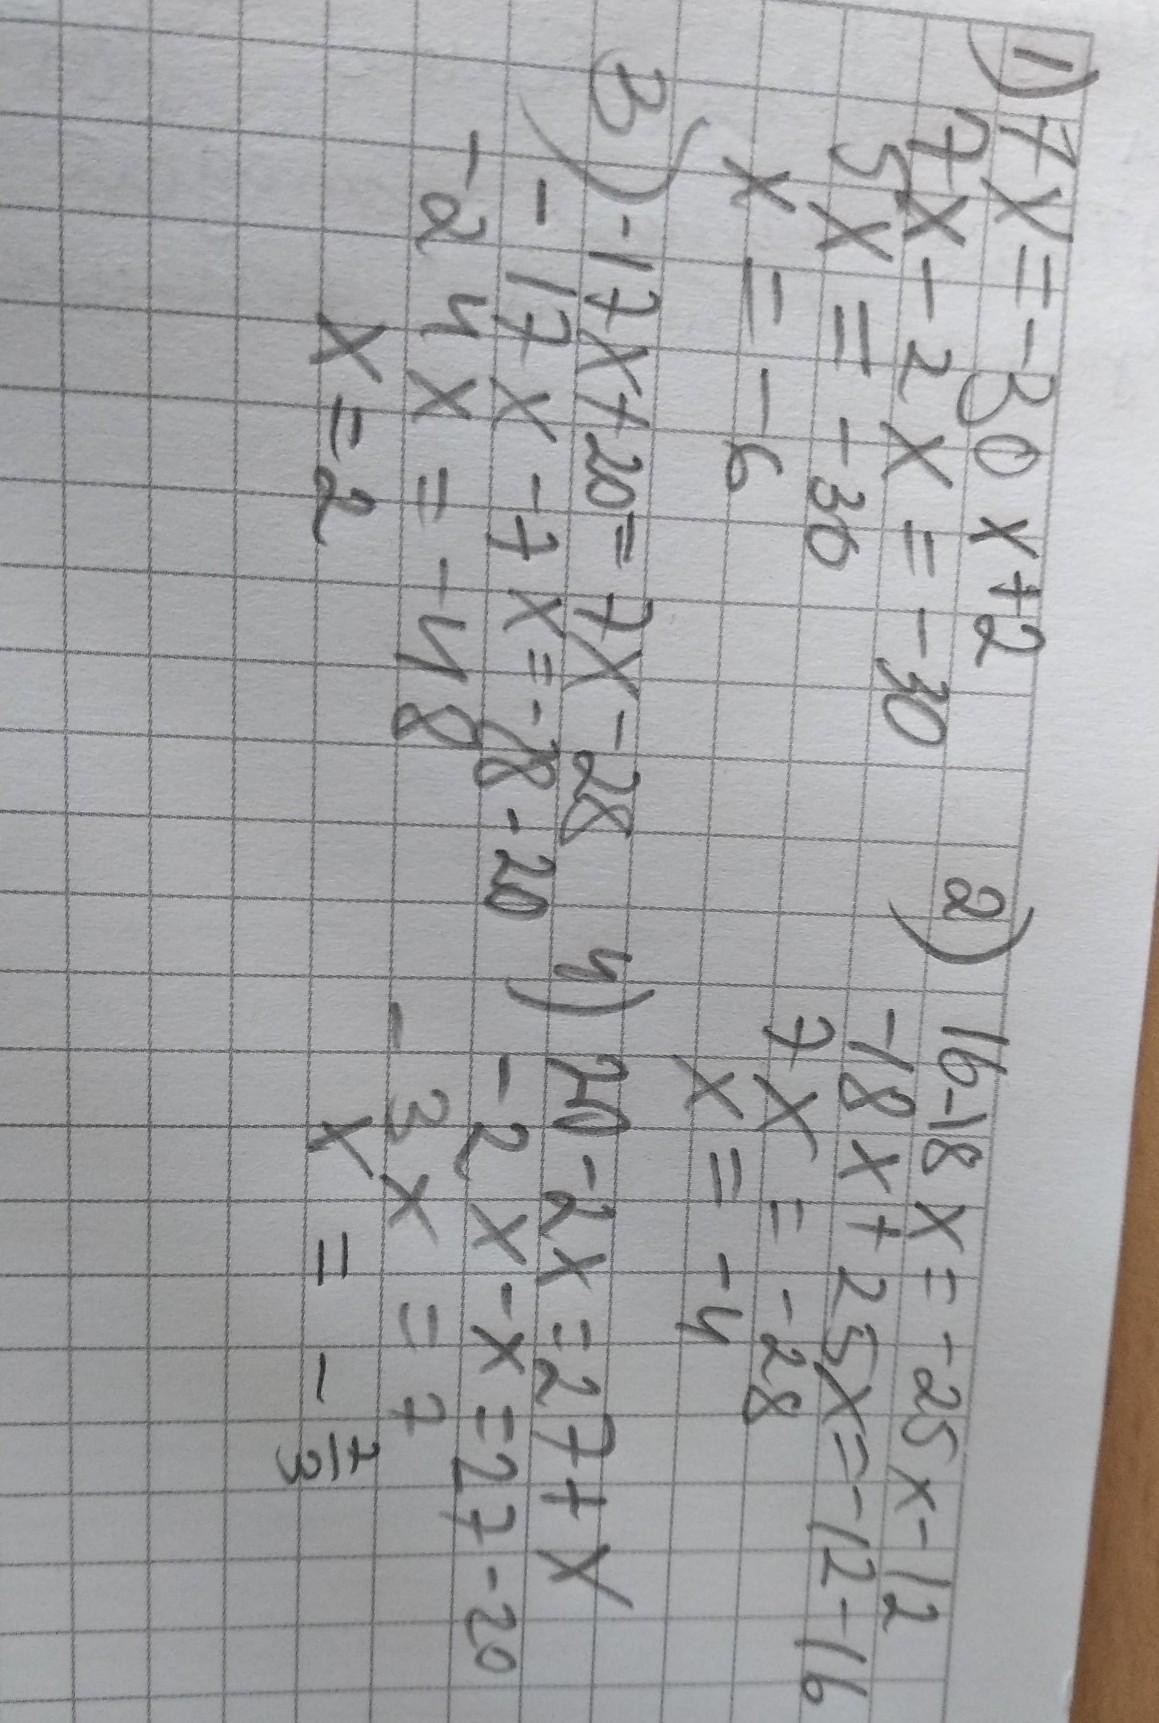 1) 7x = -30x+2
7x - 2x = -30
5x = -30
x = -6
2) 16-18x = -25x-12
-18x + 25x = -12-16
7x = -28
x = -4
3) -17x+20 = 7x-28
-17x-7x = -28-20
-24x = -48
x = 2
4) 20-2x = 27+x
-2x-x = 27-20
-3x = 7
x = -7/3